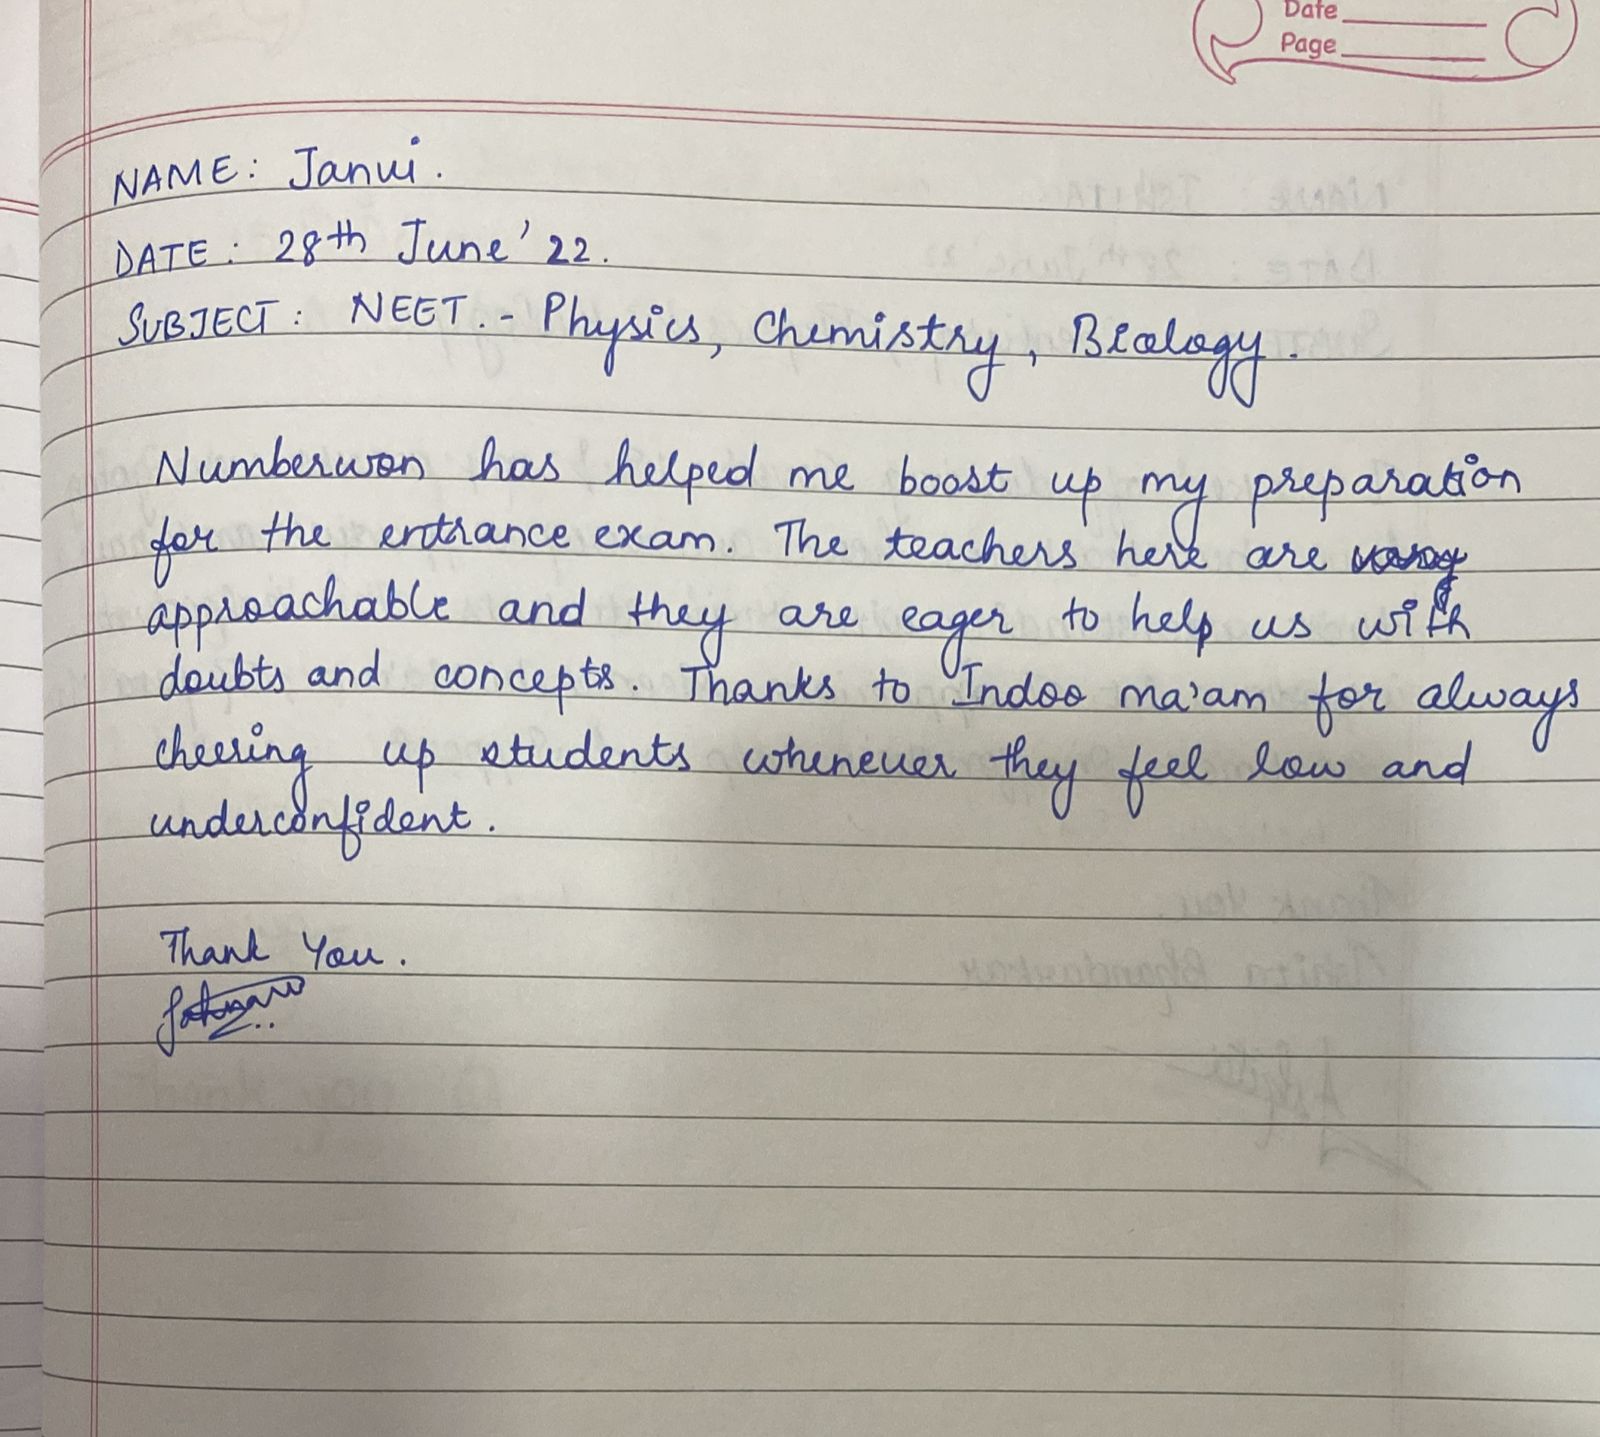 Date
Page
NAME: Janvi.
DATE: 28th June '22.
SUBJECT: NEET. - Physics, Chemistry, Biology.
Numberwon has helped me boost up my preparation
for the entrance exam. The teachers here are very
approachable and they are eager to help us with
doubts and concepts. Thanks to Indoo ma'am for always
cheering up students whenever they feel low and
underconfident.
Thank You.